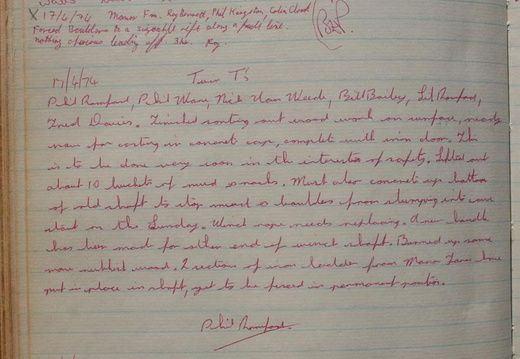 17/4/74 Manor Fm. Roy Bennett, Phil Kingston, Colin Clood
Forced Boulders to a squeeze rift along a fault line.
nothing obvious leading off. 3hr. Roy
17/4/74 Twin T's
Phil Romford, Phil Ware, Nick Van Weede, Bill Bailey, Lil Romford,
Fred Davies. Finished sorting out wood work on surface, ready
now for casting in concrete cap, complete with iron door. This
is to be done very soon in the interests of safety. Lifted out
about 10 buckets of mud & rocks. Must also concrete up bottom
of old shaft to stop mud & boulders from slumping into cave
start on the Sunday. Winch rope needs replacing. A new handle
has been made for other end of winch shaft. Burned up some
more rubbish wood. 2 section of iron ladder from Manor Farm have
put in place in shaft, yet to be fixed in permanent position.
Phil Romford.